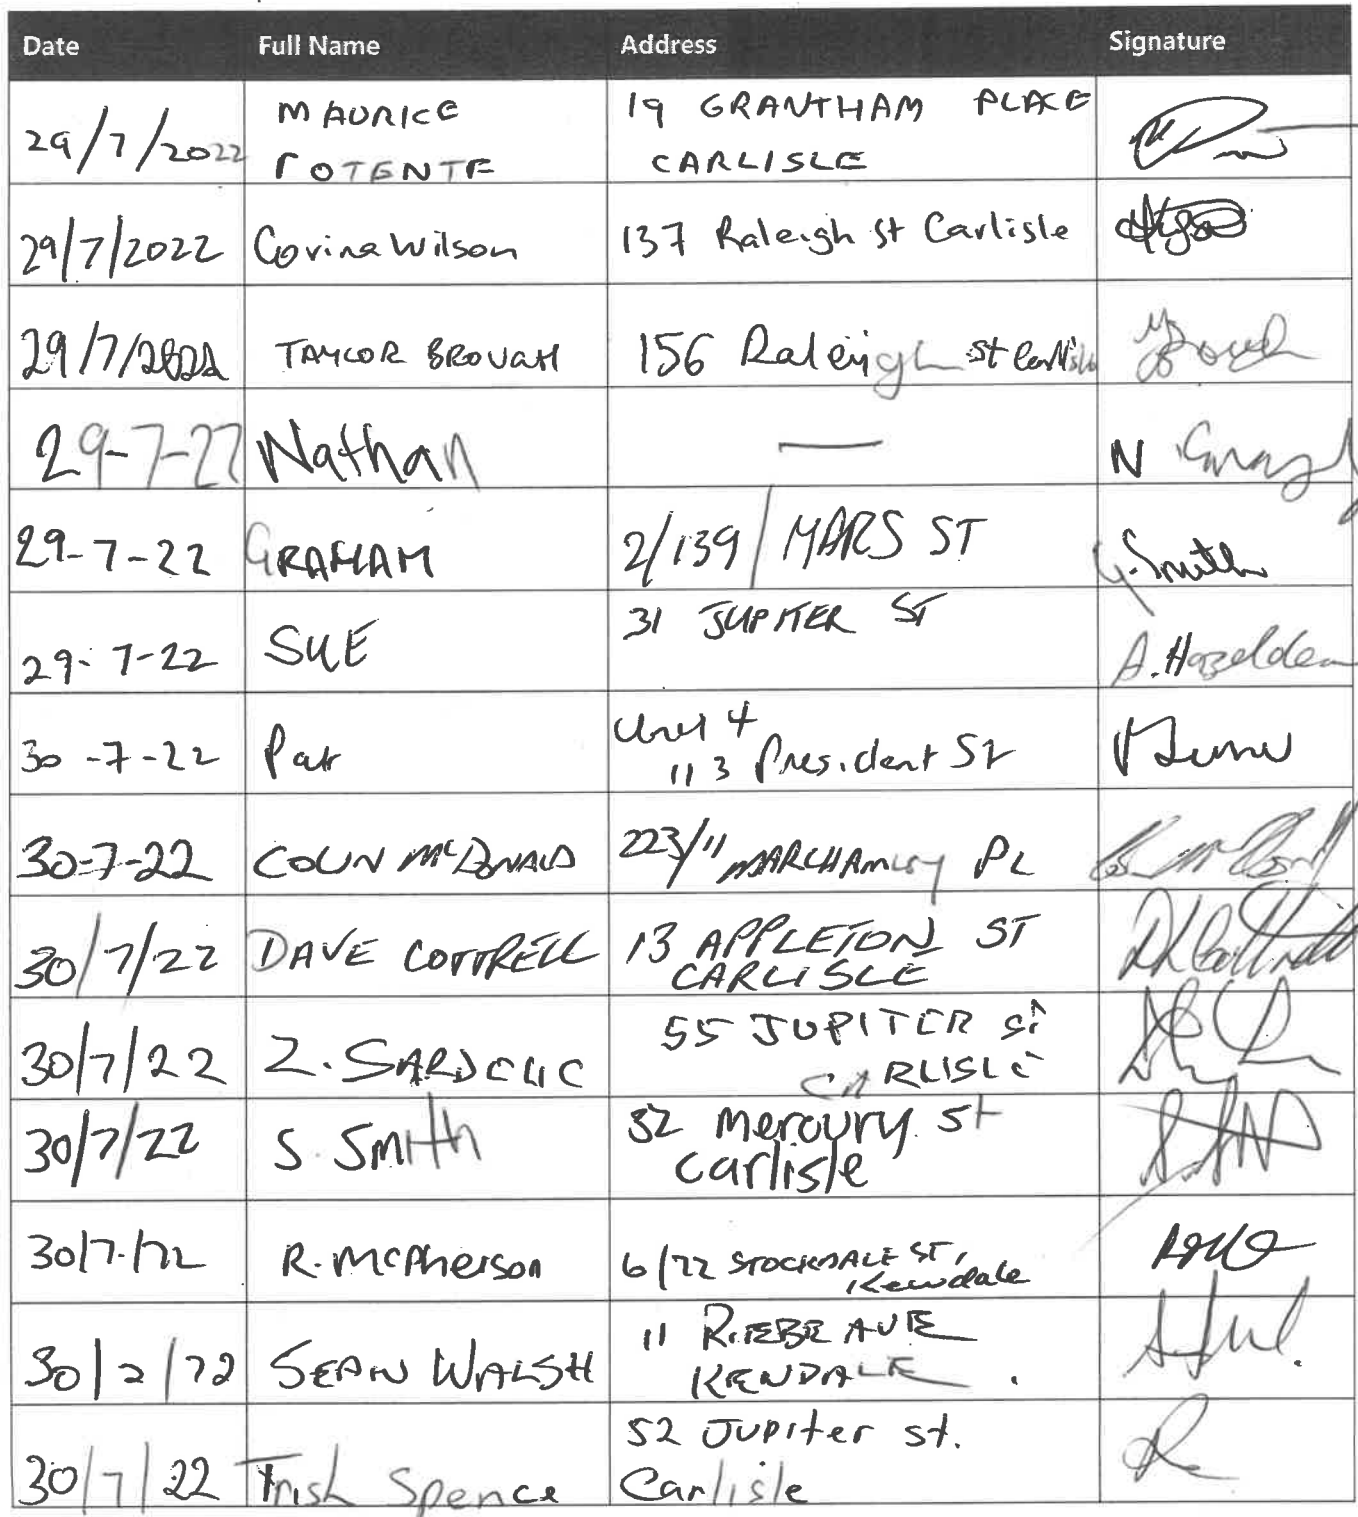 Date Full Name Address Signature
29/7/2022 MAURICE 19 GRANTHAM PLACE
POTENTE CARLISLE
29/7/2022 Corina Wilson 137 Raleigh St Carlisle
29/7/2022 TAYLOR BROUGH 156 Raleigh st Carlisle
29-7-22 Nathan — N
29-7-22 GRAHAM 2/139/ MARS ST G. Smith
29-7-22 SUE 31 JUPITER ST A. Hazelden
30-7-22 Pat Unit 4
113 President St
30-7-22 COLIN McDONALD 223/11 PL
30/7/22 DAVE COTTRELL 13 APPLETON ST
CARLISLE
30/7/22 Z. SARDELIC 55 JUPITER ST
CARLISLE
30/7/22 S. Smith 32 Mercury st
carlisle
30/7/22 R. McPherson 6/72 STOCKDALE ST,
Kewdale
30/2/22 SEAN WALSH 11 RIEBE AVE
KENDALE.
30/7/22 Trish Spence 52 Jupiter st.
Carlisle